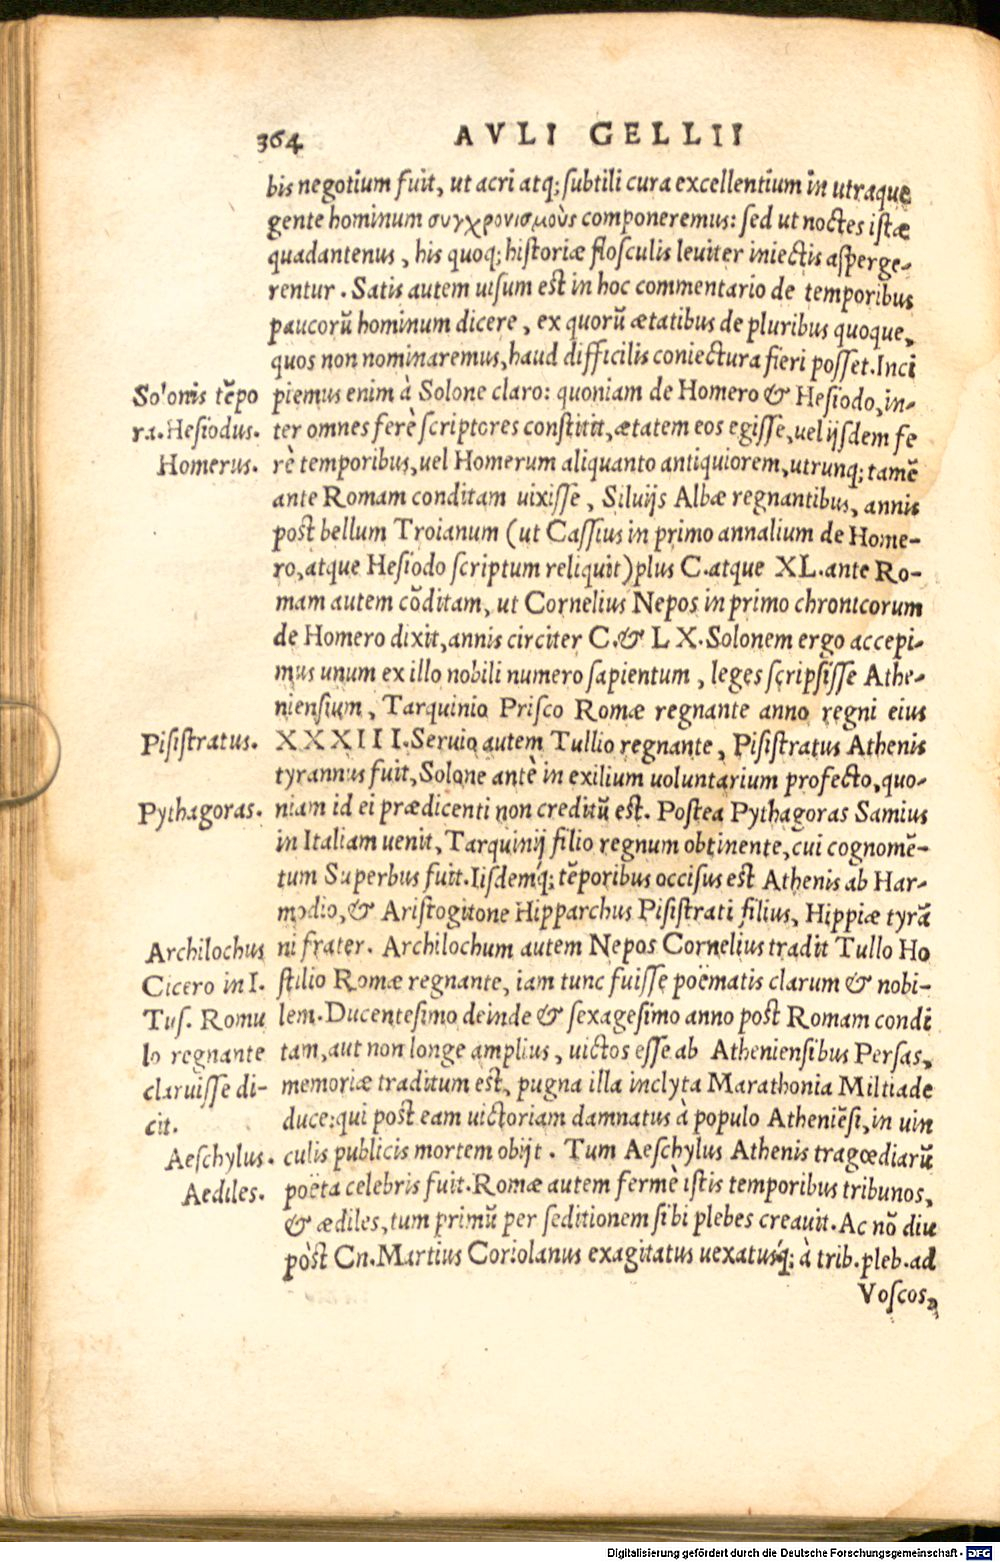 364 AVLI GELLII
bis negotium fuit, ut acri atq; subtili cura excellentium in utraque
gente hominum συγχρονισμοὺς componeremus: sed ut noctes istæ
quadantenus, his quoq; historiæ flosculis leviter iniectis asperge-
rentur. Satis autem uisum est in hoc commentario de temporibus
paucorũ hominum dicere, ex quorũ ætatibus de pluribus quoque,
quos non nominaremus, haud difficilis coniectura fieri posset. Inci
Solonis tẽpo piemus enim à Solone claro: quoniam de Homero & Hesiodo, in-
ra. Hesiodus. ter omnes ferè scriptores constitit, ætatem eos egisse, uel ijsdem fe
Homerus. rè temporibus, uel Homerum aliquanto antiquiorem, utrunq; tamẽ
ante Romam conditam uixisse, Siluijs Albæ regnantibus, annis
post bellum Troianum (ut Cassius in primo annalium de Home-
ro, atque Hesiodo scriptum reliquit) plus C. atque XL. ante Ro-
mam autem cõditam, ut Cornelius Nepos in primo chronicorum
de Homero dixit, annis circiter C. & LX. Solonem ergo accepi-
mus unum ex illo nobili numero sapientum, leges scripsisse Athe-
niensium, Tarquinio Prisco Romæ regnante anno regni eius
Pisistratus. XXXIIII. Seruio autem Tullio regnante, Pisistratus Athenis
tyrannus fuit, Solone antè in exilium uoluntarium profecto, quo-
Pythagoras. niam id ei prædicenti non creditũ est. Postea Pythagoras Samius
in Italiam uenit, Tarquinij filio regnum obtinente, cui cognomẽ-
tum Superbus fuit. Iisdemq́; tẽporibus occisus est Athenis ab Har-
modio, & Aristogitone Hipparchus Pisistrati filius, Hippiæ tyrã
Archilochus ni frater. Archilochum autem Nepos Cornelius tradit Tullo Ho
Cicero in I. stilio Romæ regnante, iam tunc fuisse poëmatis clarum & nobi-
Tus. Romu lem. Ducentesimo deinde & sexagesimo anno post Romam condi
lo regnante tam, aut non longe amplius, uictos esse ab Atheniensibus Persas,
claruisse di- memoriæ traditum est, pugna illa inclyta Marathonia Miltiade
cit. duce: qui post eam uictoriam damnatus à populo Atheniẽsi, in uin
Aeschylus. culis publicis mortem obijt. Tum Aeschylus Athenis tragœdiarũ
Aediles. poëta celebris fuit. Romæ autem fermè istis temporibus tribunos,
& ædiles, tum primũ per seditionem sibi plebes creauit. Ac nõ diu
pòst Cn. Martius Coriolanus exagitatus uexatusq́; à trib. pleb. ad
Voscos,
Digitalisierung gefördert durch die Deutsche Forschungsgemeinschaft - DFG